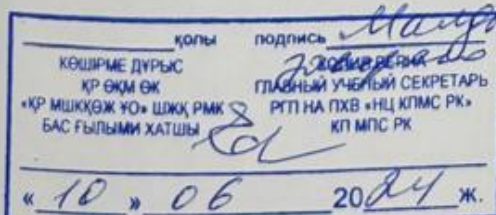 қолы подпись
КӨШІРМЕ ДҰРЫС
ҚР ӨҚМ ӨК
«ҚР МШКҚӨЖ ҰО» ШЖҚ РМК
БАС ҒЫЛЫМИ ХАТШЫ
КОПИЯ ВЕРНА
ГЛАВНЫЙ УЧЕНЫЙ СЕКРЕТАРЬ
РГП НА ПХВ «НЦ КПМС РК»
КП МПС РК
« 10 » 06 2024 ж.